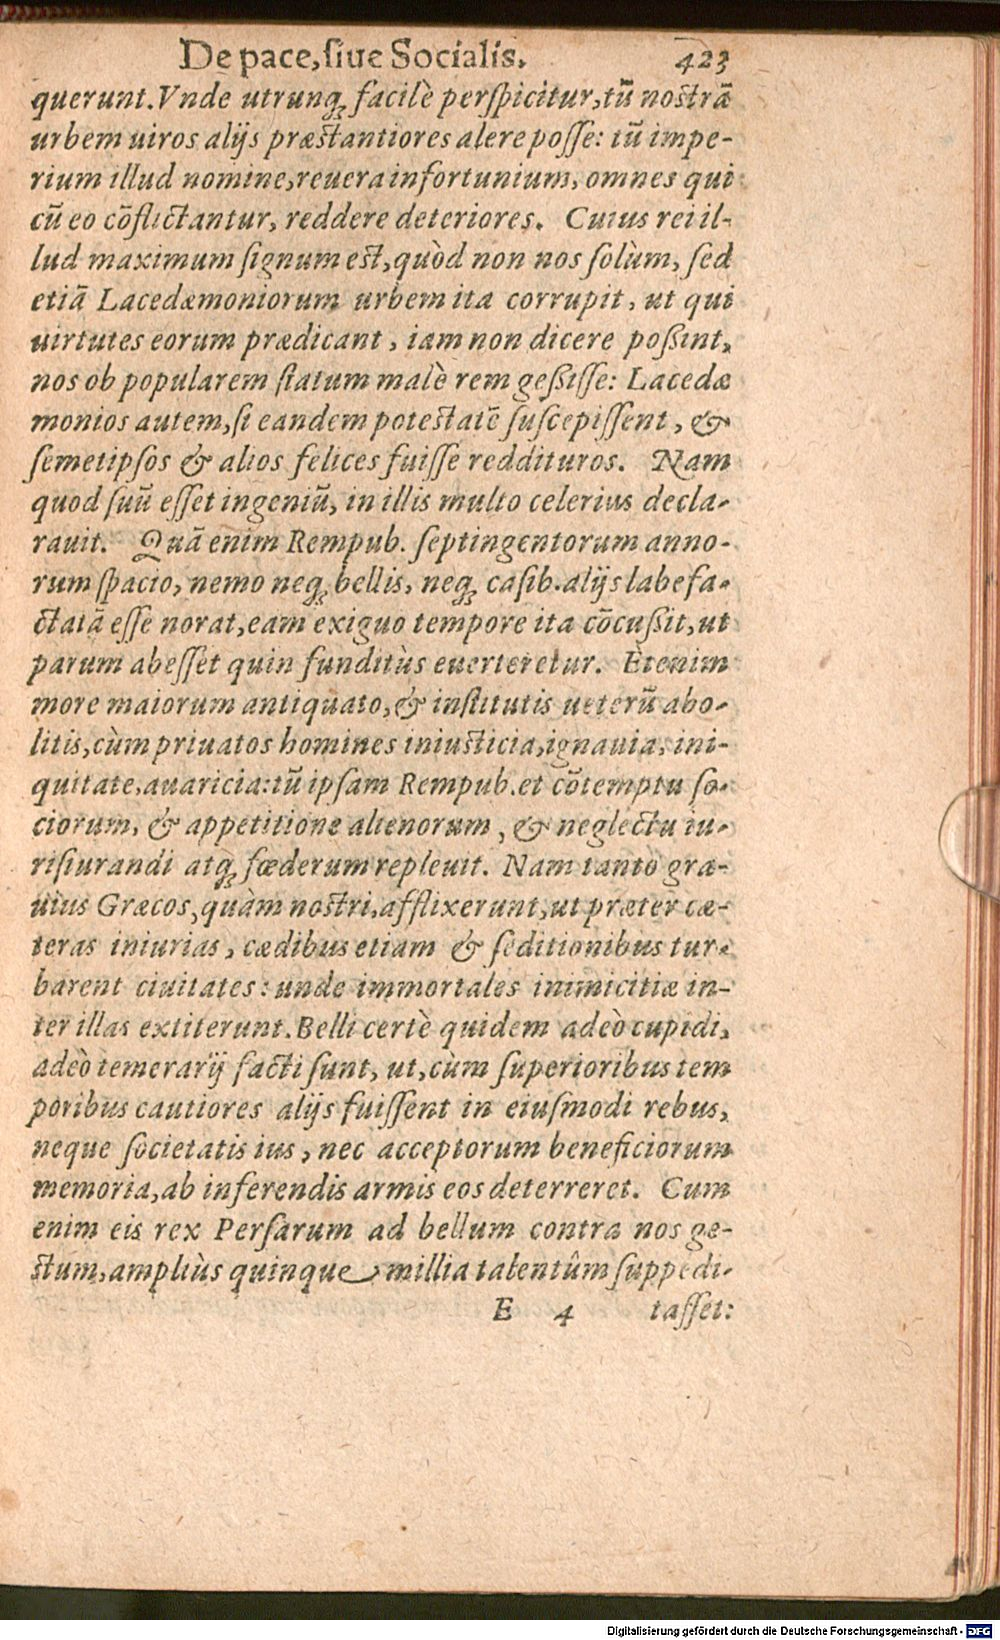 De pace, ſiue Socialis. 423
querunt. Vnde utrunq; facilè perſpicitur, tũ noſtrã
urbem uiros alijs præſtantiores alere poſſe: tũ impe-
rium illud nomine, reuera infortunium, omnes qui
cũ eo cõflictantur, reddere deteriores. Cuius rei il-
lud maximum ſignum eſt, quòd non nos ſolùm, ſed
etiã Lacedæmoniorum urbem ita corrupit, ut qui
uirtutes eorum prædicant, iam non dicere poßint,
nos ob popularem ſtatum malè rem geßiſſe: Lacedæ
monios autem, ſi eandem poteſtatẽ ſuſcepiſſent, &
ſemetipſos & alios felices fuiſſe reddituros. Nam
quod ſuũ eſſet ingeniũ, in illis multo celerius decla-
rauit. Quã enim Rempub. ſeptingentorum anno-
rum ſpacio, nemo neq; bellis, neq; caſib. alijs labefa-
ctatã eſſe norat, eam exiguo tempore ita cõcußit, ut
parum abeſſet quin funditùs euerteretur. Etenim
more maiorum antiquato, & inſtitutis ueterũ abo-
litis, cùm priuatos homines iniuſticia, ignauia, ini-
quitate, auaricia: tũ ipſam Rempub. et cõtemptu ſo-
ciorum, & appetitione alienorum, & neglectu iu-
riſiurandi atq; fœderum repleuit. Nam tantò gra-
uius Græcos, quàm noſtri, afflixerunt, ut præter cæ-
teras iniurias, cædibus etiam & ſeditionibus tur-
barent ciuitates: unde immortales inimicitiæ in-
ter illas extiterunt. Belli certè quidem adeò cupidi,
adeò temerarij facti ſunt, ut, cùm ſuperioribus tem
poribus cautiores alijs fuiſſent in eiuſmodi rebus,
neque ſocietatis ius, nec acceptorum beneficiorum
memoria, ab inferendis armis eos deterreret. Cum
enim eis rex Perſarum ad bellum contra nos ge-
ſtum, ampliùs quinque millia talentûm ſuppedi-
E 4 taſſet:
Digitalisierung gefördert durch die Deutsche Forschungsgemeinschaft - DFG